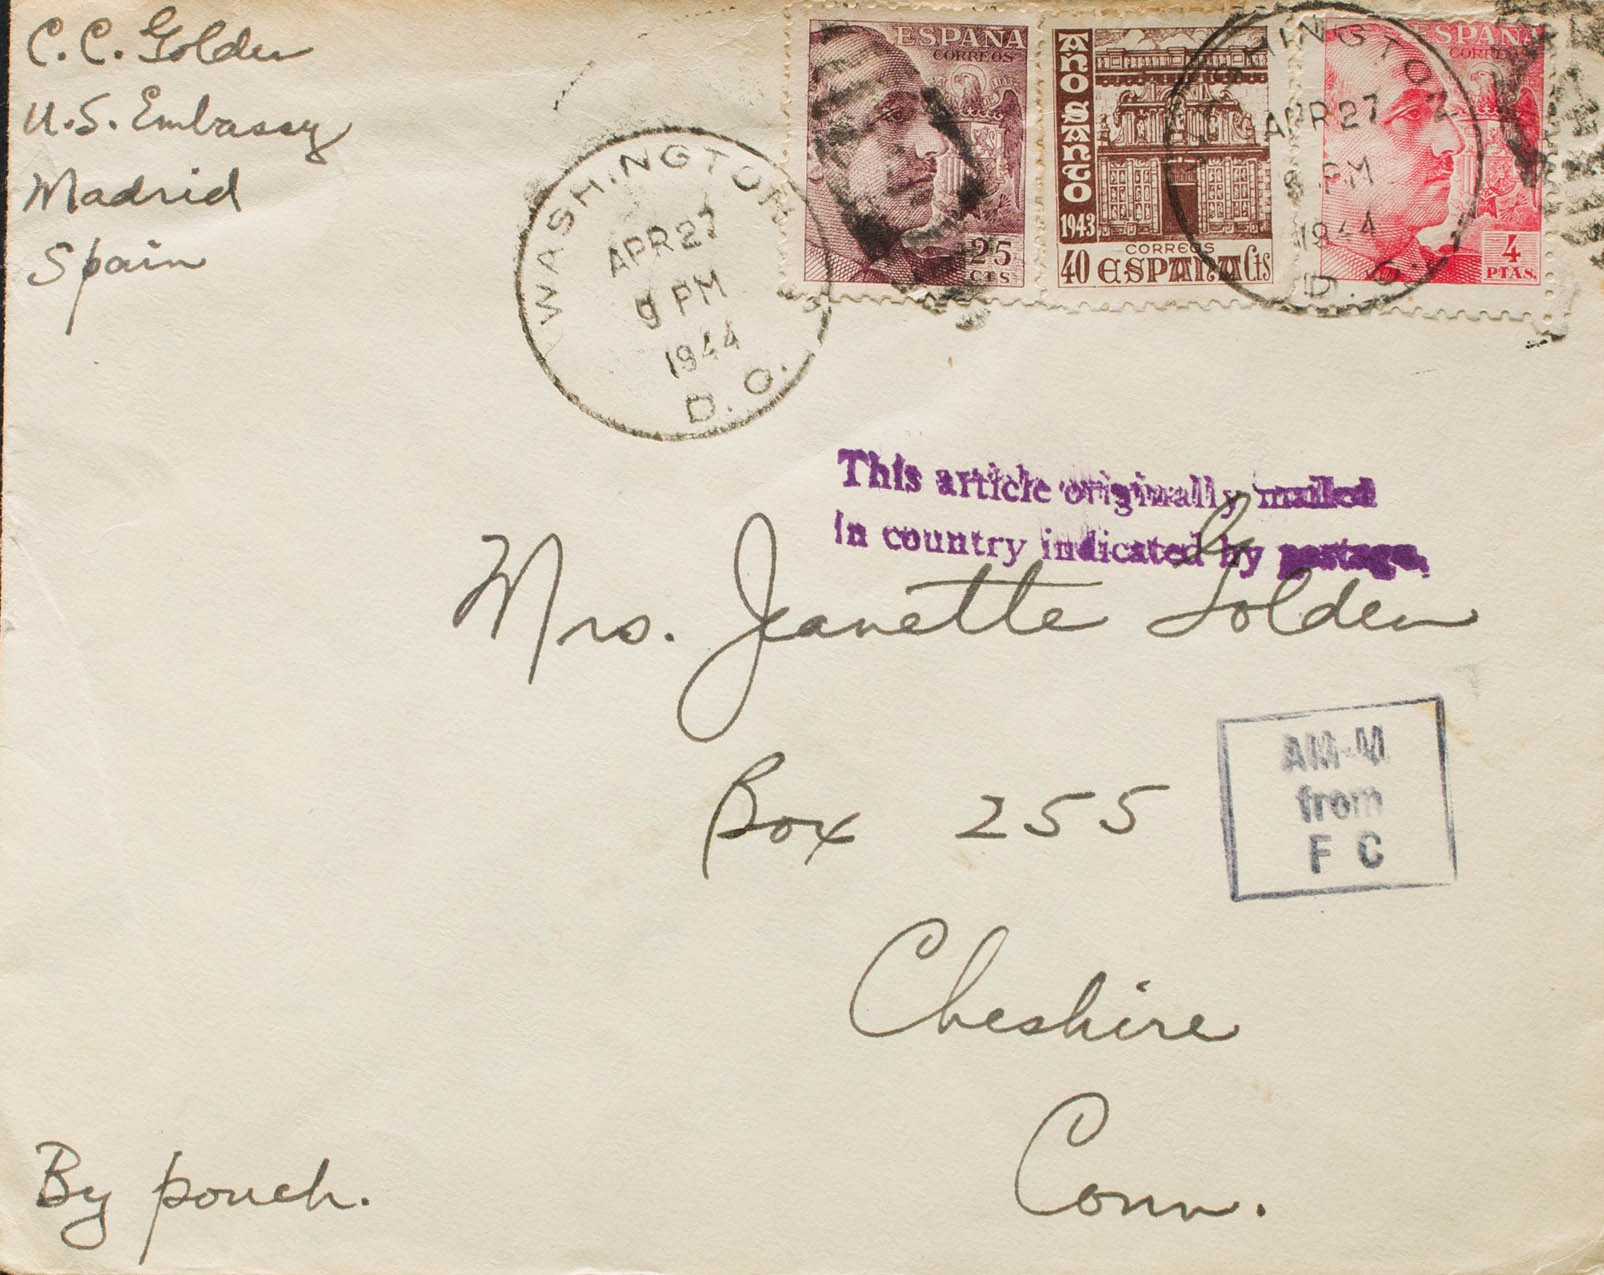 C. C. Golden
U.S. Embassy
Madrid
Spain
WASHINGTON
APR 27
9 PM
1944
D. C.
ESPAÑA
CORREOS
25
CTS
AÑO SANTO
1943
CORREOS
40 ESPAÑA Cts
ESPAÑA
CORREOS
4
PTAS.
WASHINGTON
APR 27
9 PM
1944
D. C.
This article originally mailed
in country indicated by postage.
Mrs. Jeanette G. Golden
Box 255
Cheshire
Conn.
AM-M
from
F C
By pouch.